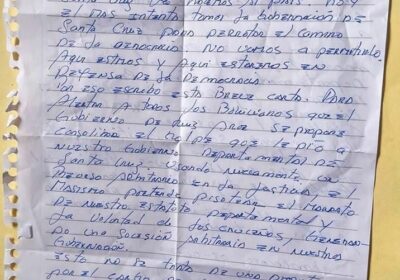 Santa Cruz
y e MAS intento tomar la Gobernación de
Santa Cruz para derrotar el camino
de la democracia. No vamos a permitirlo.
Aqui estamos y Aqui estaremos en
Defensa de la Democracia.
Por eso escribo esta Breve carta. Para
Alertar a todos los Bolivianos que el
Gobierno de Luiz Arce se propone
consolidar el Golpe que le dio a
Nuestro Gobierno Departamental de
Santa Cruz. Usando nuevamente, un
recurso arbitrario en la Justicia, el
Masismo pretende pisotear el Mandato
de nuestro Estatuto, departamental y
la voluntad de los cruceños,
de una sucesión arbitraria en nuestra
Gobernación.
Esto no se trata de una
por el